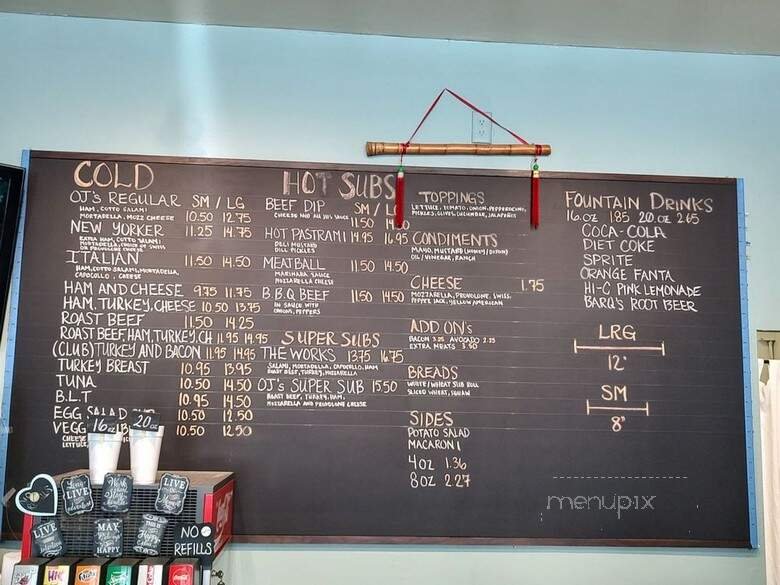 COLD
OJ'S REGULAR SM / LG
HAM, COTTO SALAMI
MORTADELLA, MOZZ CHEESE 10.50 12.75
NEW YORKER 11.25 14.75
EXTRA HAM, COTTO SALAMI
MORTADELLA, CHOICE OF SWISS
OR PROVOLONE CHEESE
ITALIAN 11.50 14.50
HAM, COTTO SALAMI, MORTADELLA,
CAPOCOLLO, CHEESE
HAM AND CHEESE 9.75 11.75
HAM, TURKEY, CHEESE 10.50 13.75
ROAST BEEF 11.50 14.25
ROAST BEEF, HAM, TURKEY, CH 11.95 14.95
(CLUB) TURKEY AND BACON 11.95 14.95
TURKEY BREAST 10.95 13.95
TUNA 10.50 14.50
B.L.T 10.95 14.50
EGG SALAD 10.50 12.50
VEGG 10.50 12.50
CHEESE
LETTUCE,
HOT SUBS
BEEF DIP SM / LG
CHEESE AND AU JUS SAUCE 11.50 14.50
HOT PASTRAMI 14.95 16.95
DELI MUSTARD
DILL PICKLES
MEATBALL 11.50 14.50
MARINARA SAUCE
MOZZARELLA CHEESE
B.B.Q BEEF 11.50 14.50
BBQ SAUCE WITH
ONIONS, PEPPERS
SUPER SUBS
THE WORKS 13.75 16.75
SALAMI, MORTADELLA, CAPOCOLLO, HAM
ROAST BEEF, TURKEY, MOZZARELLA
OJ'S SUPER SUB 15.50
ROAST BEEF, TURKEY, HAM,
MOZZARELLA AND PROVOLONE CHEESE
TOPPINGS
LETTUCE, TOMATO, ONION, PEPPERONCINI,
PICKLES, OLIVES, CUCUMBER, JALAPEÑOS
CONDIMENTS
MAYO, MUSTARD (
OIL / VINEGAR, RANCH
CHEESE 1.75
MOZZARELLA, PROVOLONE, SWISS,
PEPPER JACK, YELLOW AMERICAN
ADD ON'S
BACON 3.25 AVOCADO 2.25
EXTRA MEATS 3.50
BREADS
WHITE / WHEAT SUB ROLL
SLICED WHEAT, SQUAW
SIDES
POTATO SALAD
MACARONI
4OZ 1.36
8OZ 2.27
FOUNTAIN DRINKS
16.OZ 1.95 20.OZ 2.65
COCA-COLA
DIET COKE
SPRITE
ORANGE FANTA
HI-C PINK LEMONADE
BARQ'S ROOT BEER
LRG
12"
SM
8"
16oz
20oz
LIVE
LIVE
LIVE
MAY
HAPPY
NO
REFILLS
menupix